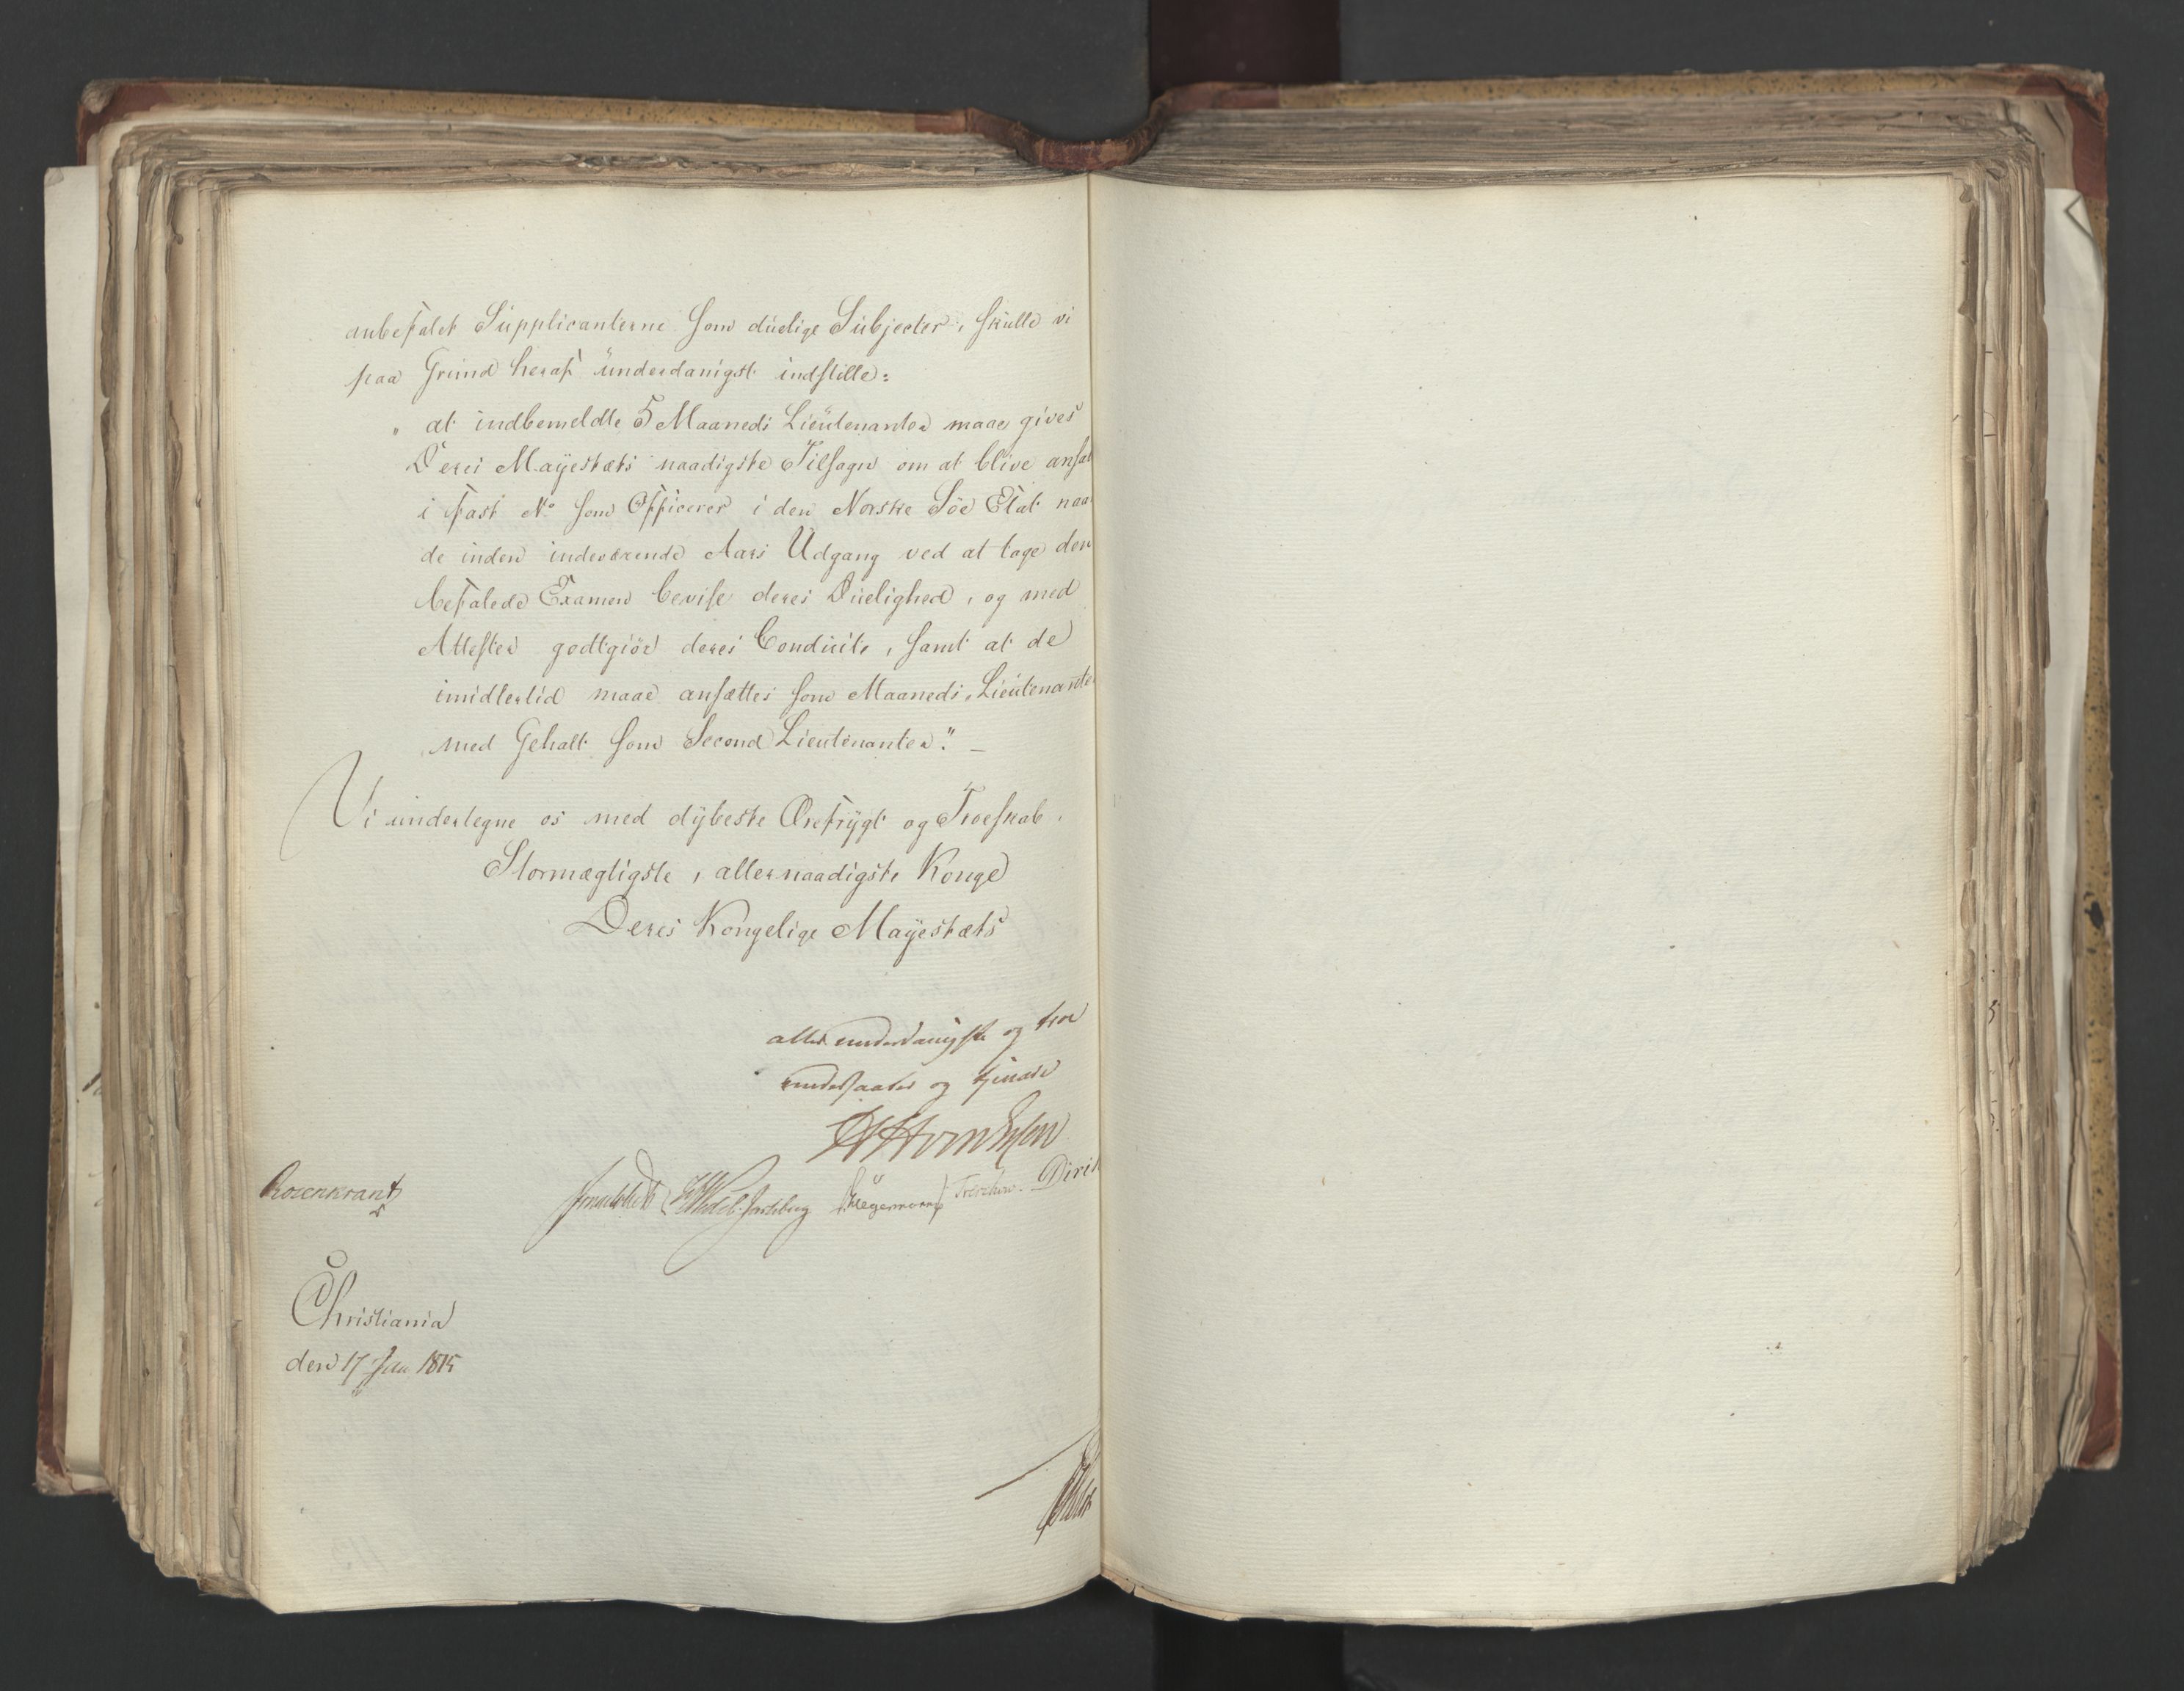 anbefalet Supplicanterne som duelige Subjecter, skulle vi
paa Grund heraf underdanigst indstille:
„ at indbemeldte 5 Maaneds Lieutenanter maae gives
Deres Mayestæts naadigste Tilsagn om at blive ansat
i fast No som Officerer i den Norske Söe Etat naar
de inden indeværende Aars Udgang ved at tage den
befalede Examen bevise deres Duelighed, og med
Attester godtgiör deres Conduite, samt at de
imidlertid maae ansættes som Maaneds-Lieutenanter
med Gehalt som Second Lieutenanter." —
Vi undertegne os med dybeste Ærefrygt og Troeskab,
Stormægtigste, allernaadigste Konge
Deres Kongelige Mayestæts
allerunderdanigste og troe
undersaatter og tjenere
Rosenkrantz
Wedel-Jarlsberg Hegermann Treschow. Diriks
Christiania
den 17 Jun 1815